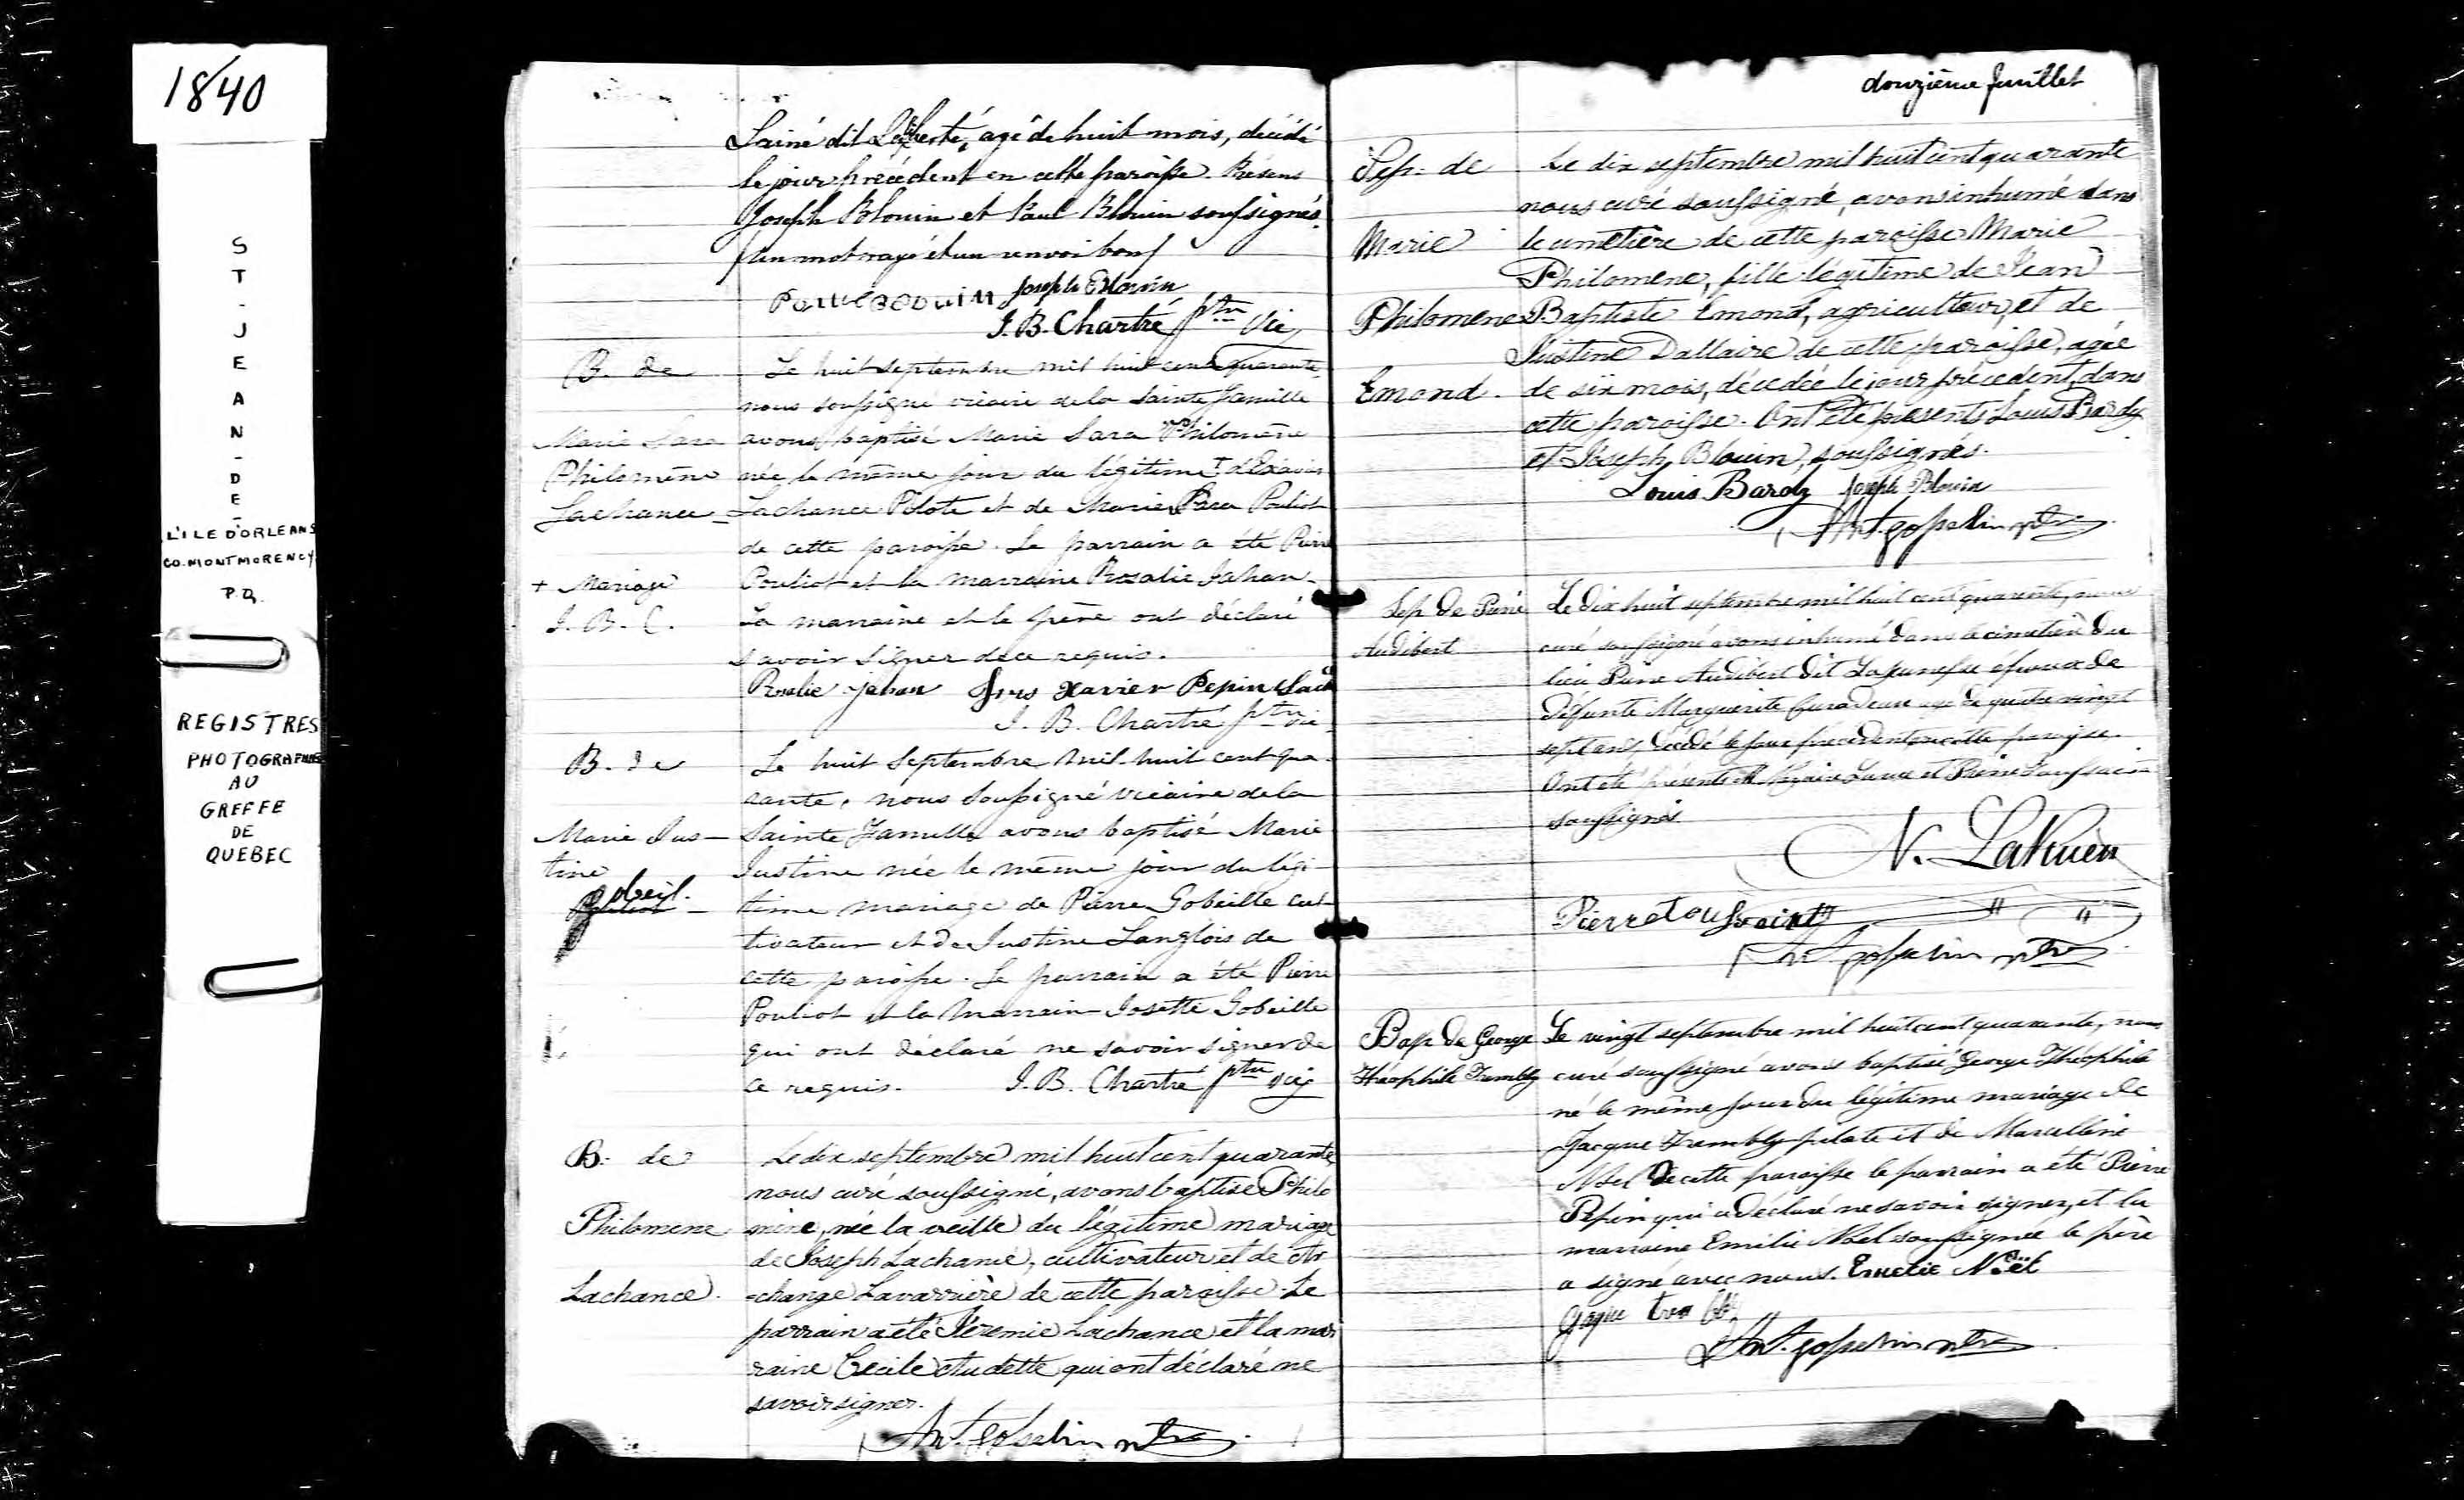 1840
ST-JEAN-DE-
L'ILE D'ORLEANS
CO. MONTMORENCY
P.Q.
REGISTRES
PHOTOGRAPHIES
AU
GREFFE
DE
QUEBEC
Lainé dit Laliberté, agé de huit mois, décédé
le jour précédent en cette paroisse. Présens
Joseph Blouin et Paul Blouin soussignés.
un mot rayé et un renvoi bons
Paul Blouin Joseph Blouin
J. B. Chartré ptre Vic
B. de
Marie Sara
Philomène
Lachance
+ Mariage
J. B. C.
Le huit septembre mil huit cent quarante
nous soussigné vicaire de la Sainte Famille
avons baptisé Marie Sara Philomène
née le même jour du légitime + d'Exavier
Lachance Pilote et de Marie Sara Pouliot
de cette paroisse. Le parrain a été Pierre
Pouliot et la marraine Rosalie Jahan.
La marraine et le père ont déclaré
savoir signer de ce requis.
Rosalie jahan Frs Xavier Pepin Lach
J. B. Chartré ptre vic
B. de
Marie Jus-
tine
Gobeil.
Le huit Septembre mil-huit cent qua-
rante, nous soussigné vicaire de la
Sainte Famille avons baptisé Marie
Justine née le même jour du légi-
time mariage de Pierre Gobeille cul-
tivateur et de Justine Langlois de
cette paroisse. Le parrain a été Pierre
Pouliot et la Marraine Josette Gobeille
qui ont déclaré ne savoir signer de
ce requis. J. B. Chartré ptre vic
B. de
Philomene
Lachance.
Le dix septembre mil huit cent quarante
nous curé soussigné, avons baptisé Philo
mène, née la veille du légitime mariage
de Joseph Lachance, cultivateur et de Ar
-change Lavarrière de cette paroisse. Le
parrain a été Jéremie Lachance et la mar
raine Cecile Audette qui ont déclaré ne
savoir signer.
Ant. Gosselin ptre
douzième feuillet
Sep. de
Marie
Philomene
Emond.
Le dix septembre mil huit cent quarante
nous curé soussigné, avons inhumé dans
le cimetière de cette paroisse Marie
Philomene, fille légitime de Jean
Baptiste Emond, agriculteur, et de
Justine Dallaire de cette paroisse, agée
de six mois, décedée le jour précedent, dans
cette paroisse. Ont été présents Louis Bardy
et Joseph Blouin, soussignés.
Louis Bardy Joseph Blouin
Ant. Gosselin ptre
Sep de Pierre
Audibert
Le dix huit septembre mil huit cent quarante, nous
curé soussigné avons inhumé dans le cimetière du
lieu Pierre Audibert dit Lajeunesse époux de
défunte Marguerite agé de quatre vingt
sept ans, décédé le jour precedent en cette paroisse.
Ont été présents et Pierre Toussaint
soussignés
Pierre toussaint
Ant Gosselin ptre
Bap de George
Théophile Trembly
Le vingt septembre mil huit cent quarante, nous
curé soussigné avons baptisé George Théophile
né le même jour du légitime mariage de
Jacque Trembly pilote et de Marcelline
Noel de cette paroisse le parrain a été Pierre
Pepin qui a déclaré ne savoir signer, et la
marraine Emilie Noel soussignée le père
a signé avec nous. Emelie Noël
Ant. Gosselin ptre